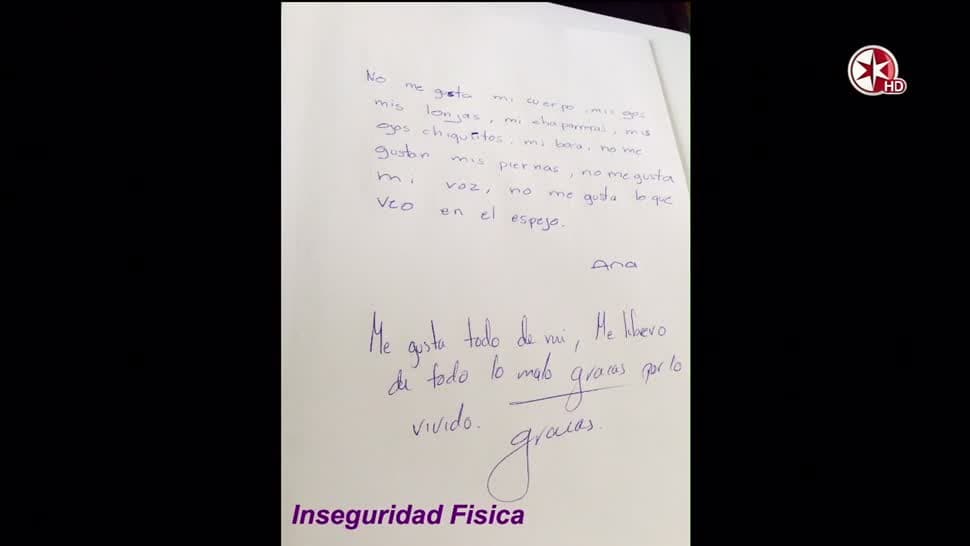 No me gusta mi cuerpo mis ojos
mis lonjas, mi chaparrras, mis
ojos chiquitos, mi boca, no me
gustan mis piernas, no me gusta
mi voz, no me gusta lo que
veo en el espejo.
Ana
Me gusta todo de mi, Me libero
de todo lo malo gracias por lo
vivido. gracias.
Inseguridad Fisica
HD